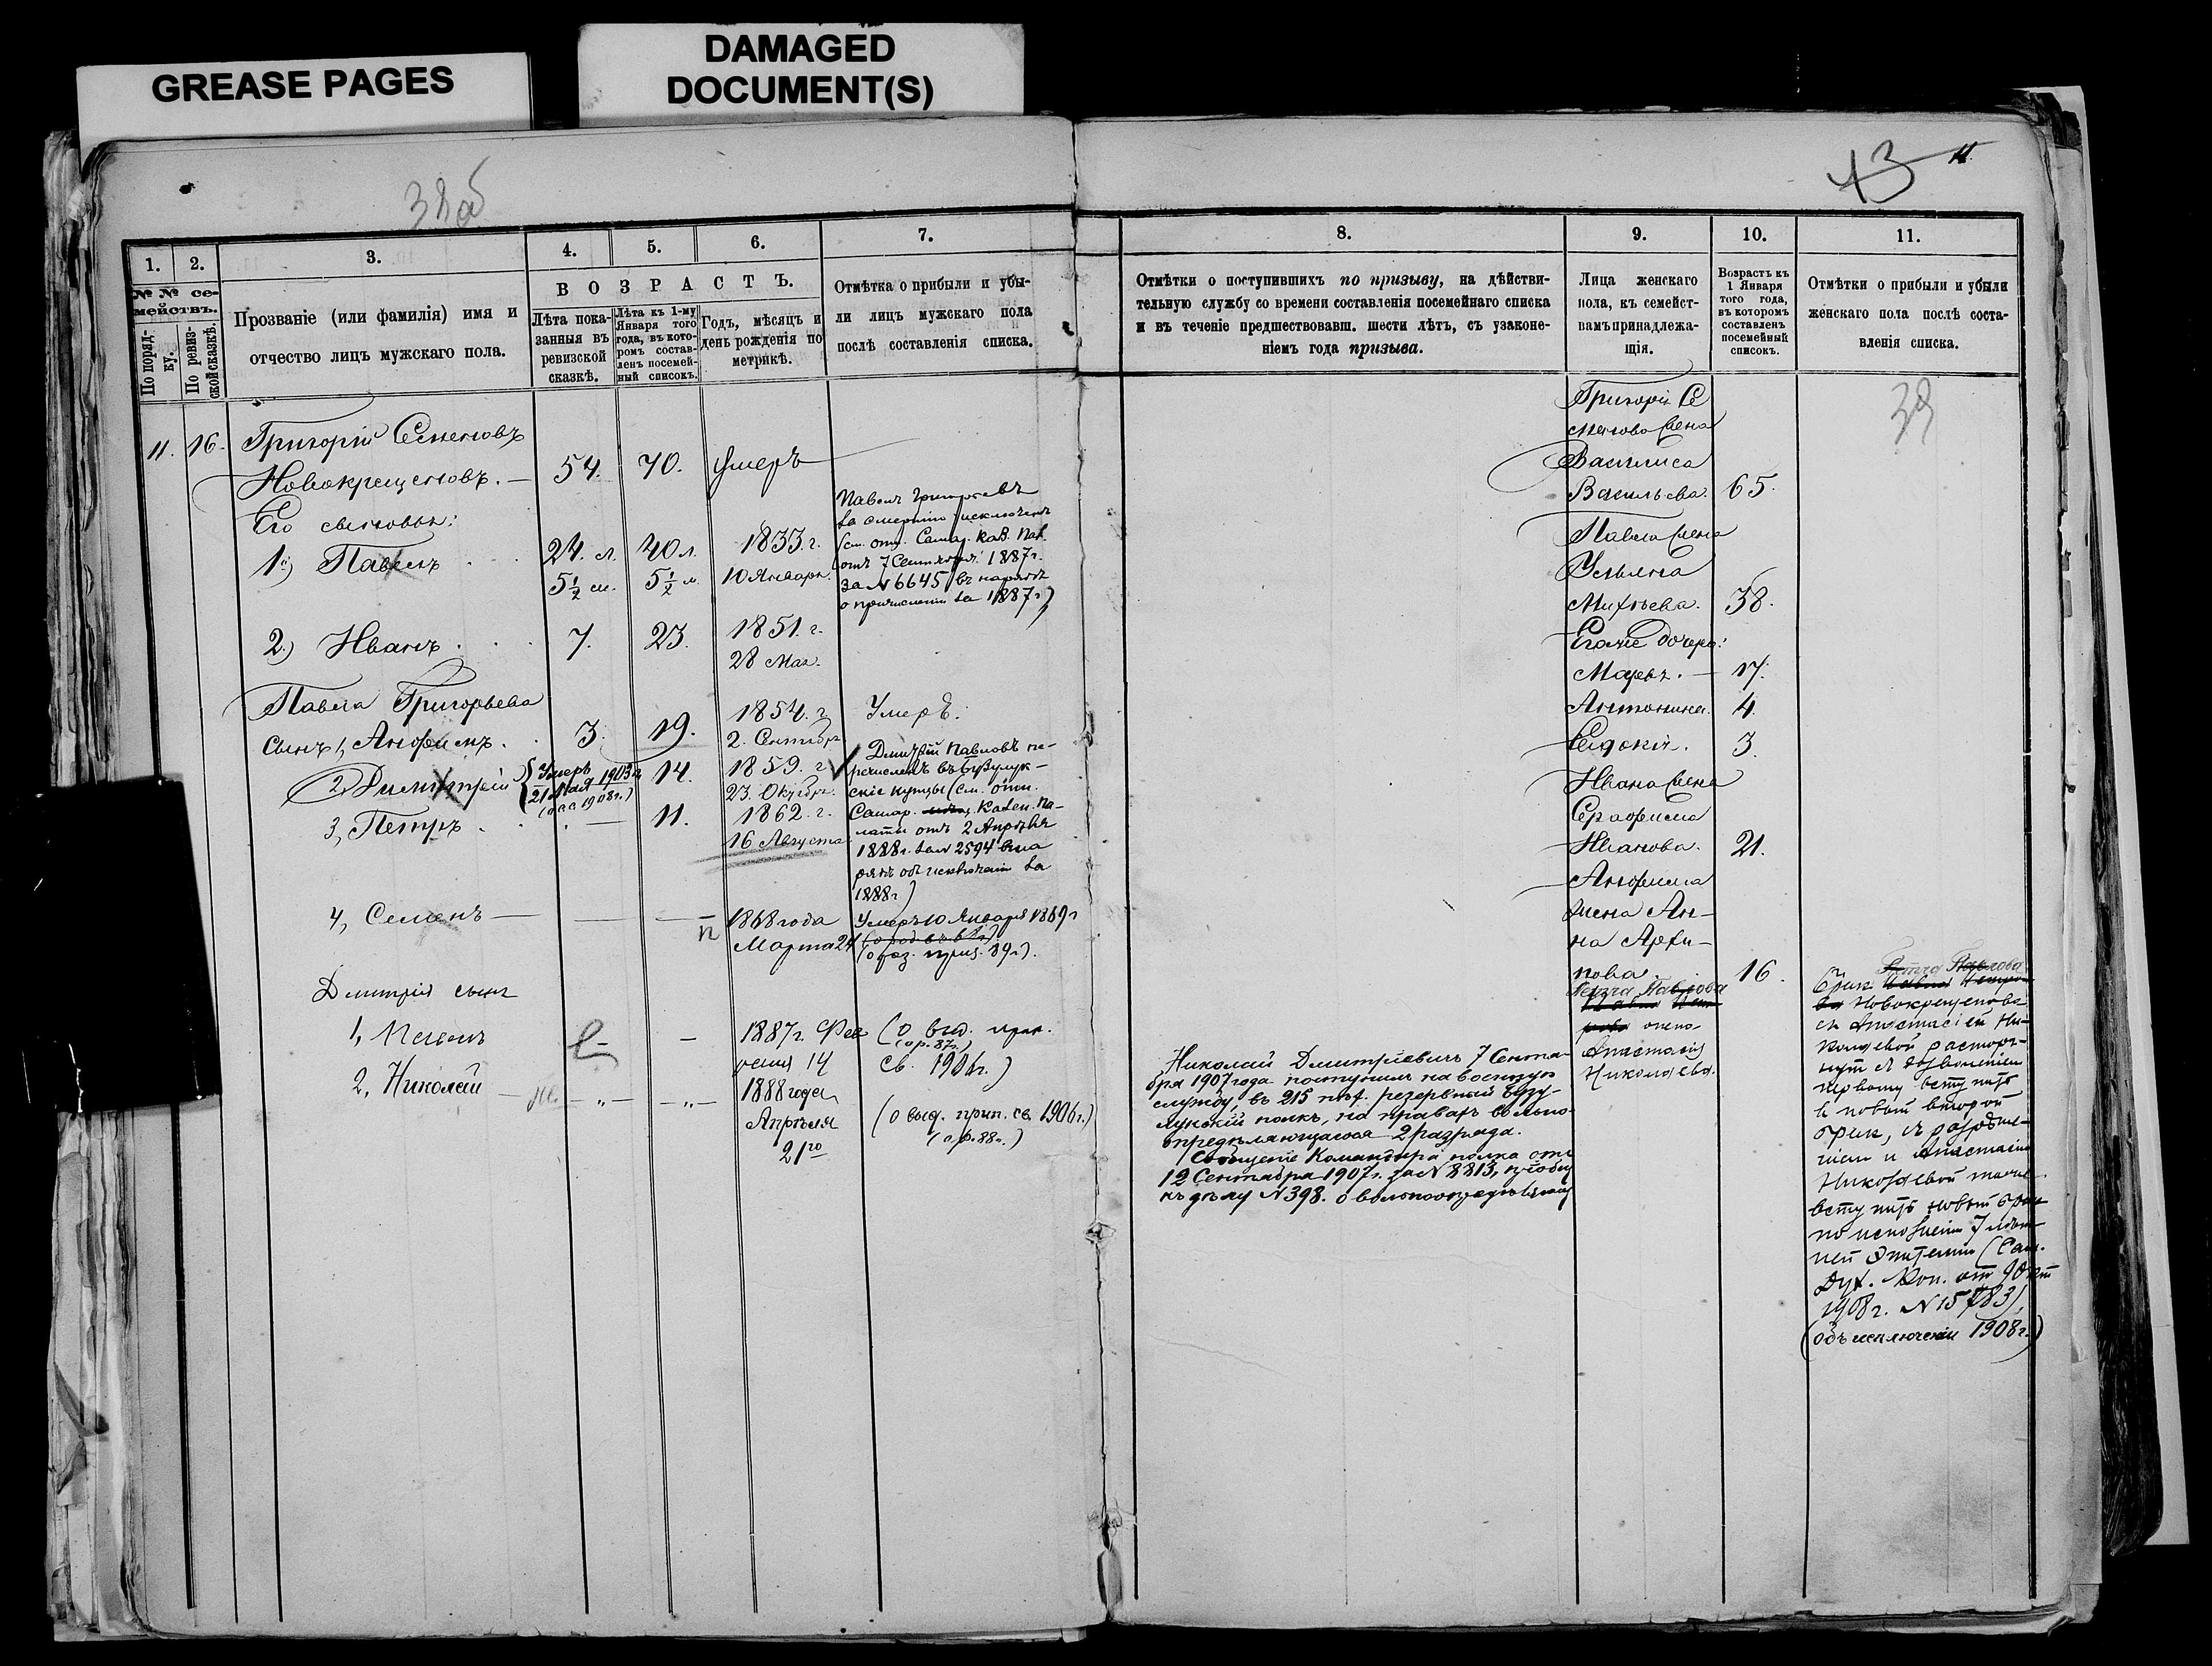 GREASE PAGES
DAMAGED
DOCUMENT(S)
38об
13 11.
1.
2.
3.
4.
5.
6.
7.
№№ се-
мействъ.
По поряд-
ку.
По ревиз-
ской сказкѣ.
Прозваніе (или фамилія) имя и
отчество лицъ мужскаго пола.
ВОЗРАСТЪ.
Лѣта пока-
занныя въ
ревизской
сказкѣ.
Лѣта къ 1-му
Января того
года, въ кото-
ромъ состав-
ленъ посемей-
ный списокъ.
Годъ, мѣсяцъ и
день рожденія по
метрикѣ.
Отмѣтка о прибыли и убы-
ли лицъ мужскаго пола
послѣ составленія списка.
11. 16. Григорій Семеновъ
Новокрещеновъ. — 54. 70. Умеръ
Его сыновья:
1й) Павелъ 24. л. 40 л. 1833. г.
5½ м. 5½ м. 10 Января.
Павелъ Григорьевъ
за смертію исключенъ
(см. отн. Самар. Каз. Пал.
отъ 7 Сентября 1887 г.
за № 6645 въ нарядѣ
о причисленіи за 1887 г.)
2.) Иванъ 7. 23. 1851. г.
28 Мая.
Павла Григорьева
сынъ 1, Анфимъ. 3. 19. 1854. г. Умеръ.
2. Сентября
2, Димитрій { Умеръ
21 Мая 1903 г.
14. 1859. г.
23. Октября.
Дмитрій Павловъ пе-
речисленъ въ Бузулук-
скіе купцы (см. отн.
Самар. Казен. Па-
латы отъ 2 Апрѣля
1888 г. за № 2594 въ на
рядѣ объ исключеніи за
1888 г)
3, Петръ — 11. 1862. г.
16 Августа
4, Семенъ — — — 1868 года
Марта 24
Умеръ 10 Января 1869 г
Дмитрія сынъ
1, Павелъ — — 1887 г. Фев
раля 14
(О выд. прип.
(о р. 87 г.)
св. 1906 г.)
2, Николай — „ — — „ — 1888 года
Апрѣля
21го
(О выд. прип. св. 1906 г.)
(о р. 88 г.)
8.
9.
10.
11.
Отмѣтки о поступившихъ по призыву, на дѣйстви-
тельную службу со времени составленія посемейнаго списка
и въ теченіе предшествовавш. шести лѣтъ, съ узаконе-
ніемъ года призыва.
Лица женскаго
пола, къ семейст-
вамъ принадлежа-
щія.
Возрастъ къ
1 Января
того года,
въ которомъ
составленъ
посемейный
списокъ.
Отмѣтки о прибыли и убыли
женскаго пола послѣ соста-
вленія списка.
39
Григорія Се
менова жена
Василиса
Васильева. 65.
Павла жена
Ульяна
Михѣева. 38.
Его же дочери:
Марья. — 17.
Антонина. 4.
Евдокія. 3.
Ивана жена
Серафима
Иванова. 21.
Анфима
жена Ан-
на Архи-
пова. 16.
Петра Павлова
жена
Анастасія
Николаева.
Николай Дмитріевичъ 7 Сентя-
бря 1907 года поступилъ на военную
службу, въ 215 пѣх. резервный Бузу-
лукскій полкъ, на правахъ вольно-
опредѣляющагося 2 разряда.
Сообщеніе Командира полка отъ
12 Сентября 1907 г. за № 8813,
къ дѣлу № 398. о вольноопредѣляющ
Петра Павлова
Бракъ
Новокрещенова
съ Анастасіей Ни-
колаевой расторг-
нутъ съ дозволеніемъ
первому вступить
въ новый второй
бракъ, съ разрѣше-
ніемъ и Анастасіи
Николаевой также
вступить новый бракъ
по исполненіи 7 лѣт-
ней эпитеміи (Сам.
Дух. Кон. отъ 9 Окт
1908 г. № 15783),
(объ исключеніи 1908 г.)